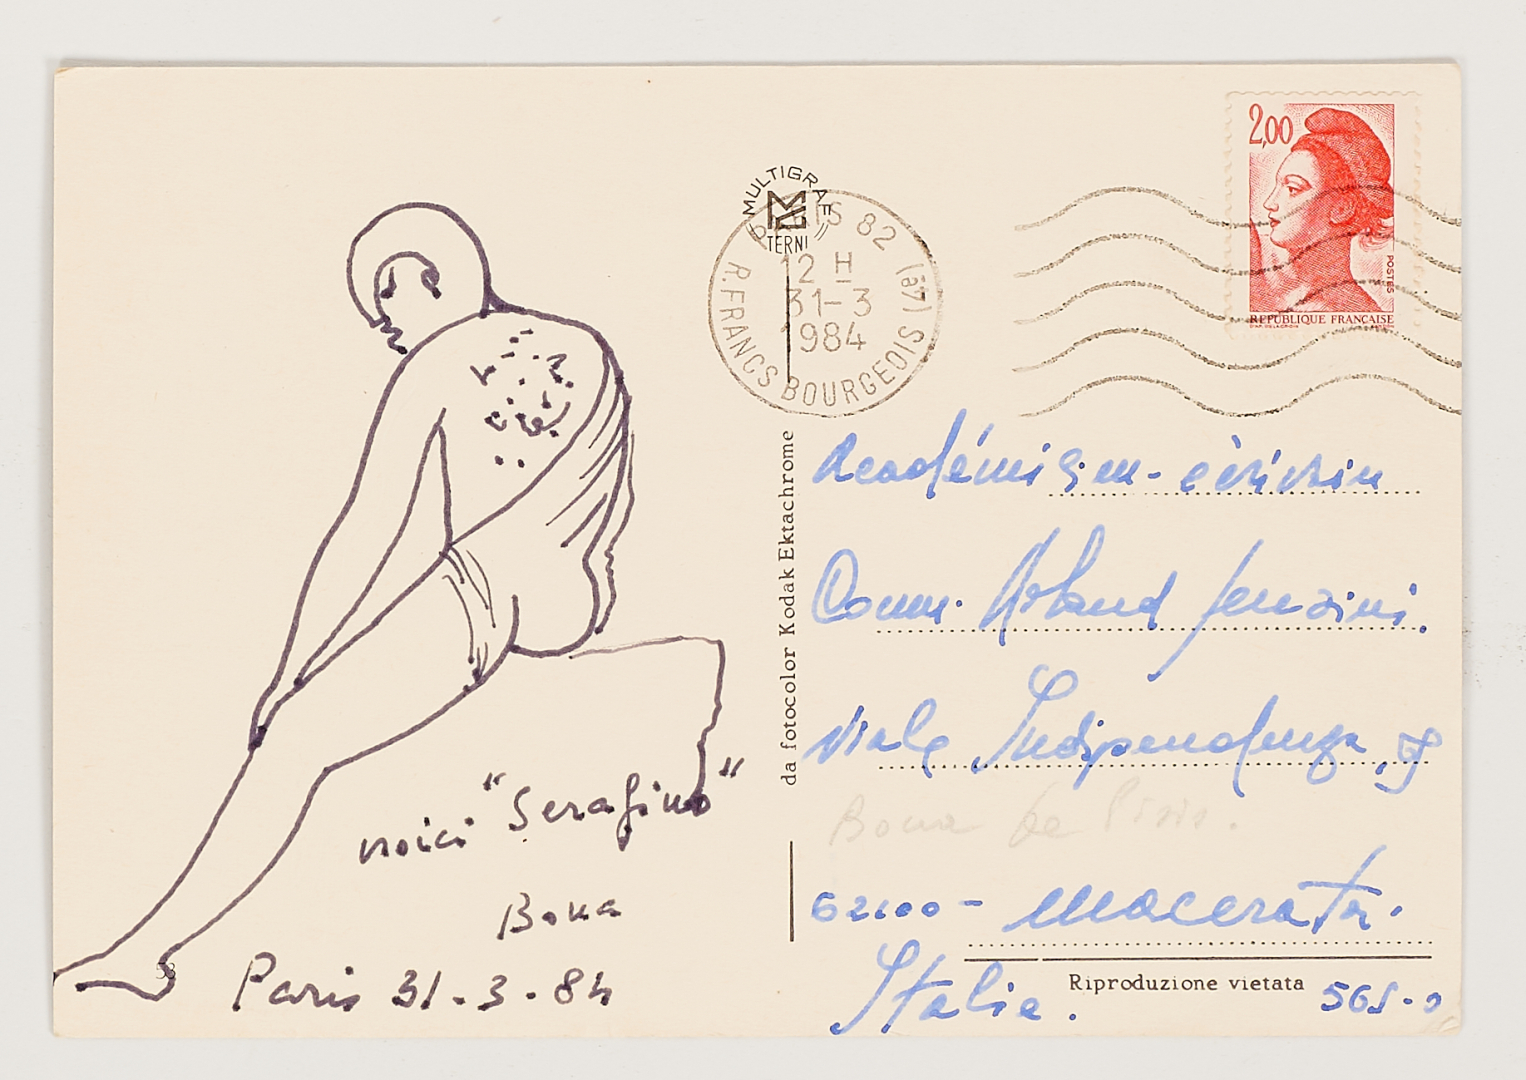 voici "Serafino"
Bona
Paris 31-3-84
53
MULTIGRAF
TERNI
PARIS 82 (4è)
12 H
31-3
1984
R. FRANCS BOURGEOIS
da fotocolor Kodak Ektachrome
2,00
POSTES
REPUBLIQUE FRANÇAISE
Académicien-écrivain
Comm.
Viale Indipendenza,
Bona de Pisis.
62100 - Macerata.
Italie.
Riproduzione vietata